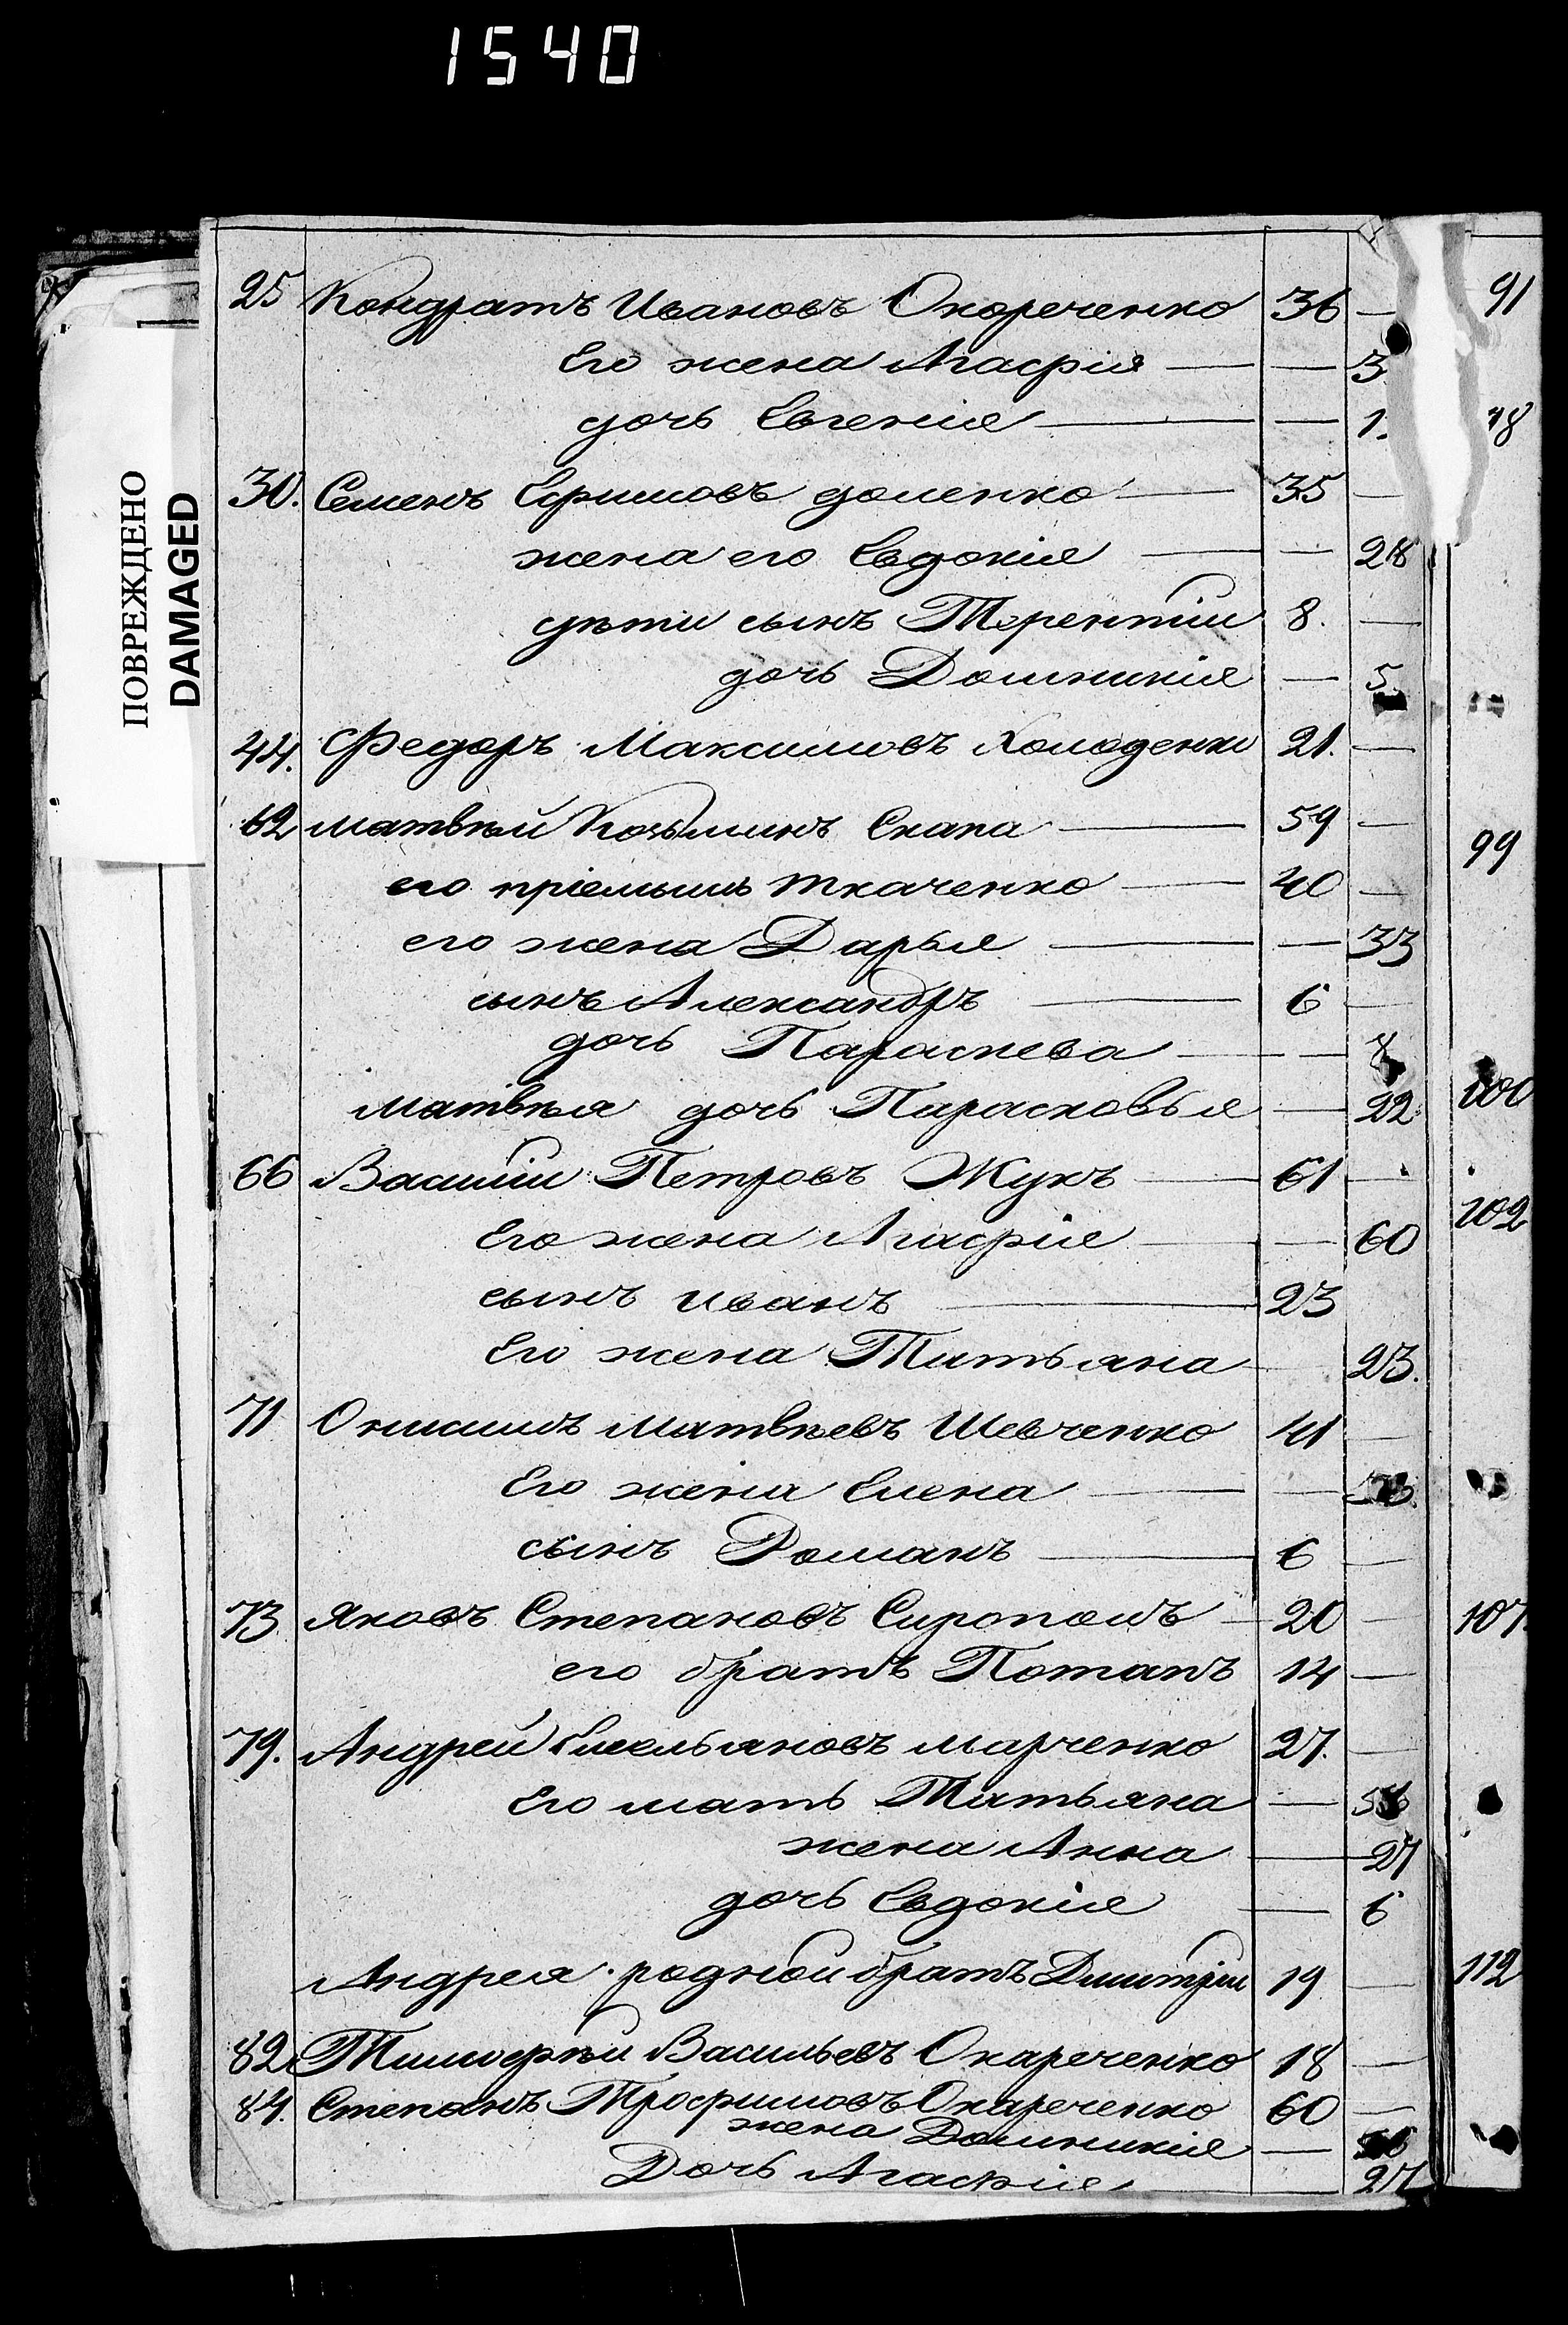 1540
ПОВРЕЖДЕНО
DAMAGED
25 Кондратъ Ивановъ Окореченко 36 —
Его жена Агафія — — 3
дочь Евгенія — — 1.
30. Семенъ Ефимовъ доленко — 35 —
жена его Евдокія — — 28
дѣти сынъ Терентіи 8. —
дочь Домникія — 5
44. Федоръ Максимовъ Холоденко 21. —
62 Матвѣй Козьминъ Скапа — 59 —
его пріемышъ Ткаченко — 40 —
его жена Дарья — — 33
сынъ Александръ — 6 —
дочь Параскева — — 8
Матвѣя дочь Парасковья — 22
66 Василіи Петровъ Жукъ — 61 —
Его жена Агафія — — 60
сынъ Иванъ — 23
Его жена Татьяна — 23.
71 Онисимъ Матвѣевъ Шевченко 41 —
Его жена Елена — —
сынъ Романъ — 6 —
73 Яковъ Степановъ Сиропомъ — 20 —
его братъ Потапъ 14 —
79. Андрей Емельяновъ Марченко 27. —
Его мать Татьяна —
жена Анна — 27
дочь Евдокія — 6
Андрея родной братъ Дмитріи 19 —
82 Тимофѣи Васильевъ Окареченко 18 —
84. Степанъ Трофимовъ Окареченко 60 —
жена Домникія —
Дочь Агафія — 27
91
99
100
102
107.
112